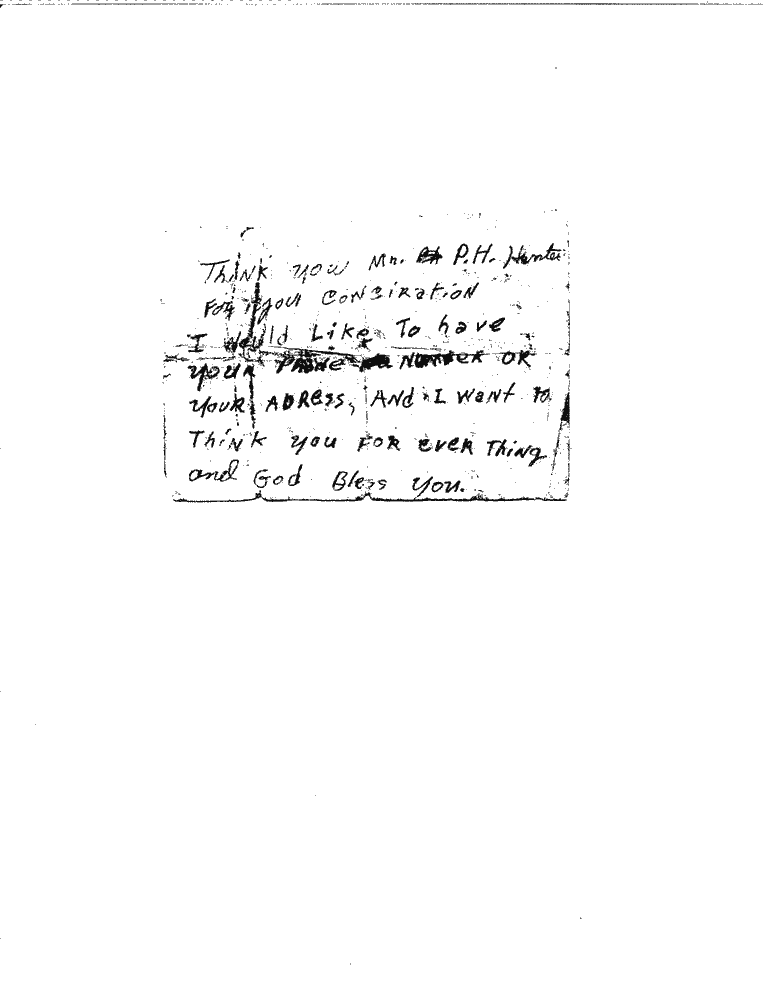 Think you Mr. P.H. Hunter
For your Consiration
I would Like To have
your Phone Number or
your Adress, And I want to
Think you For ever Thing
and God Bless you.